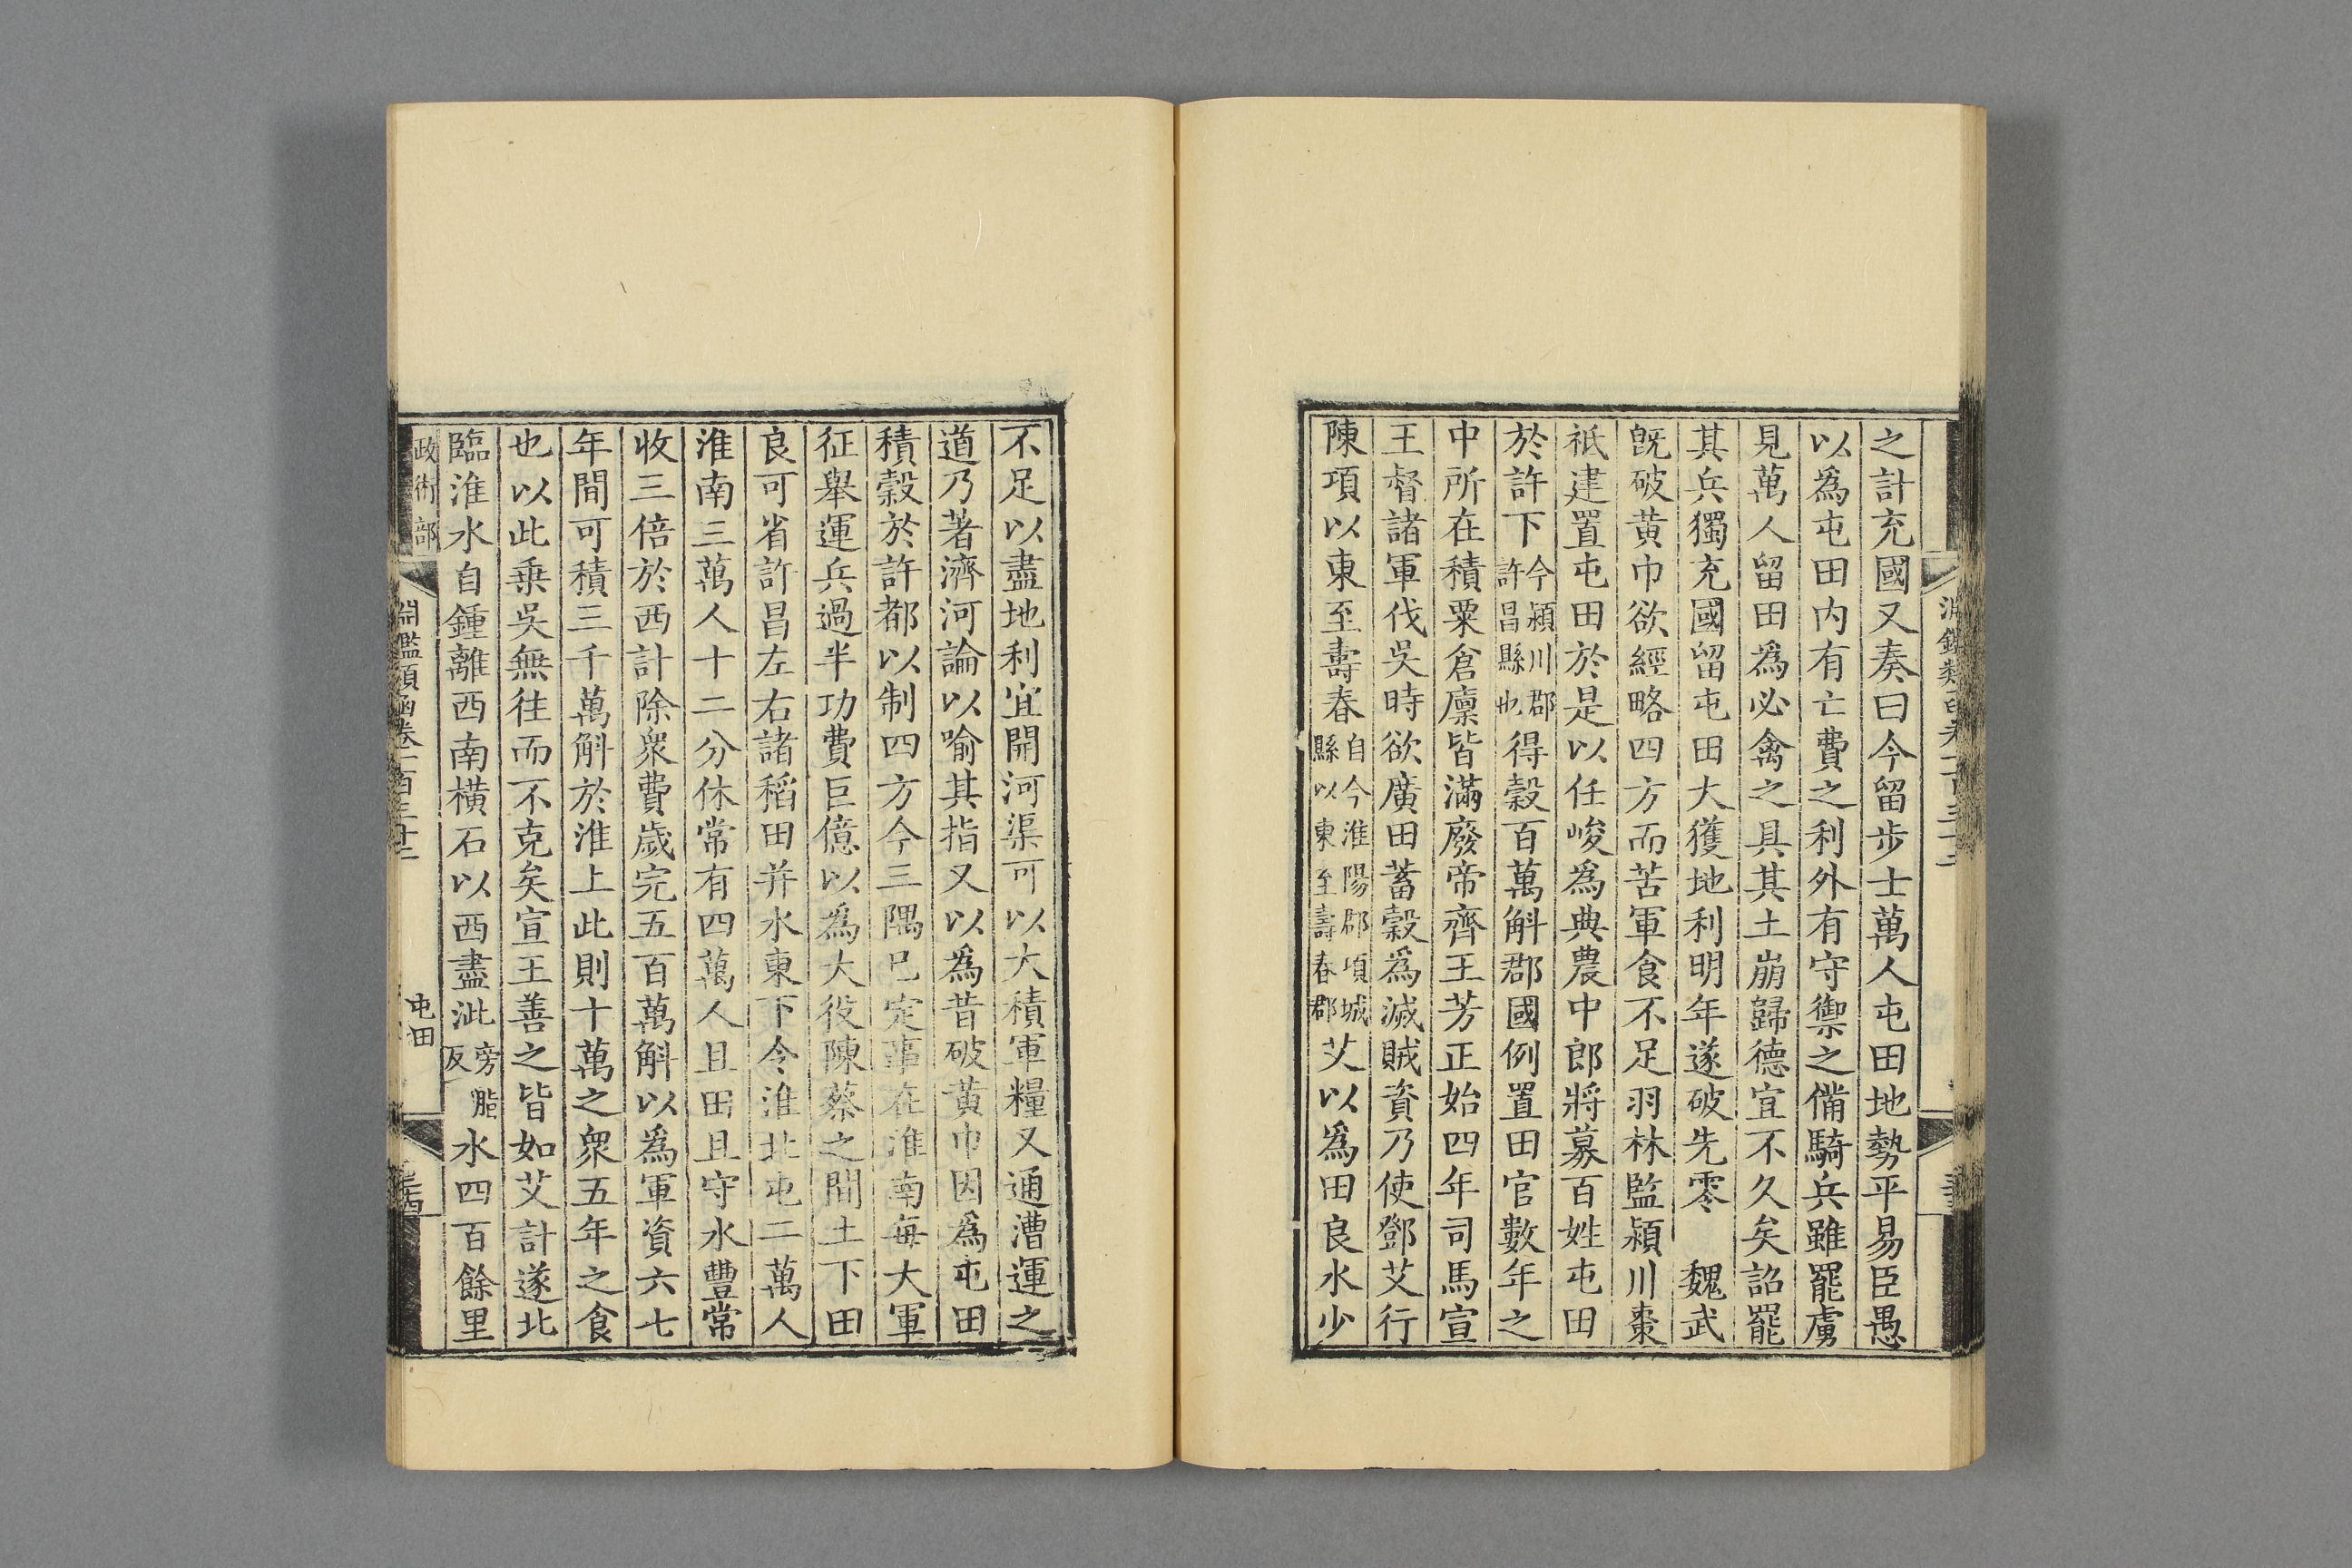 之計充國又奏曰今留步士萬人屯田地勢平易臣愚
以爲屯田内有亡費之利外有守禦之備騎兵雖罷虜
見萬人留田爲必禽之具其土崩歸德宜不久矣詔罷
其兵獨充國留屯田大獲地利明年遂破先零　魏武
旣破黃巾欲經略四方而苦軍食不足羽林監潁川棗
祗建置屯田於是以任峻爲典農中郎將募百姓屯田
於許下今潁川郡許昌縣也得穀百萬斛郡國例置田官數年之
中所在積粟倉廩皆滿廢帝齊王芳正始四年司馬宣
王督諸軍伐吳時欲廣田蓄穀爲滅賊資乃使鄧艾行
陳項以東至壽春自今淮陽郡項城縣以東至壽春郡艾以爲田良水少
不足以盡地利宜開河渠可以大積軍糧又通漕運之
道乃著濟河論以喻其指又以爲昔破黃巾因爲屯田
積穀於許都以制四方今三隅已定事在淮南每大軍
征舉運兵過半功費巨億以爲大役陳蔡之間土下田
良可省許昌左右諸稻田并水東下令淮北屯二萬人
淮南三萬人十二分休常有四萬人且田且守水豐常
收三倍於西計除衆費歲完五百萬斛以爲軍資六七
年間可積三千萬斛於淮上此則十萬之衆五年之食
也以此乗吳無往而不克矣宣王善之皆如艾計遂北
臨淮水自鍾離西南橫石以西盡沘旁脂反水四百餘里
政術部
淵鑑類函卷一百三十二
屯田